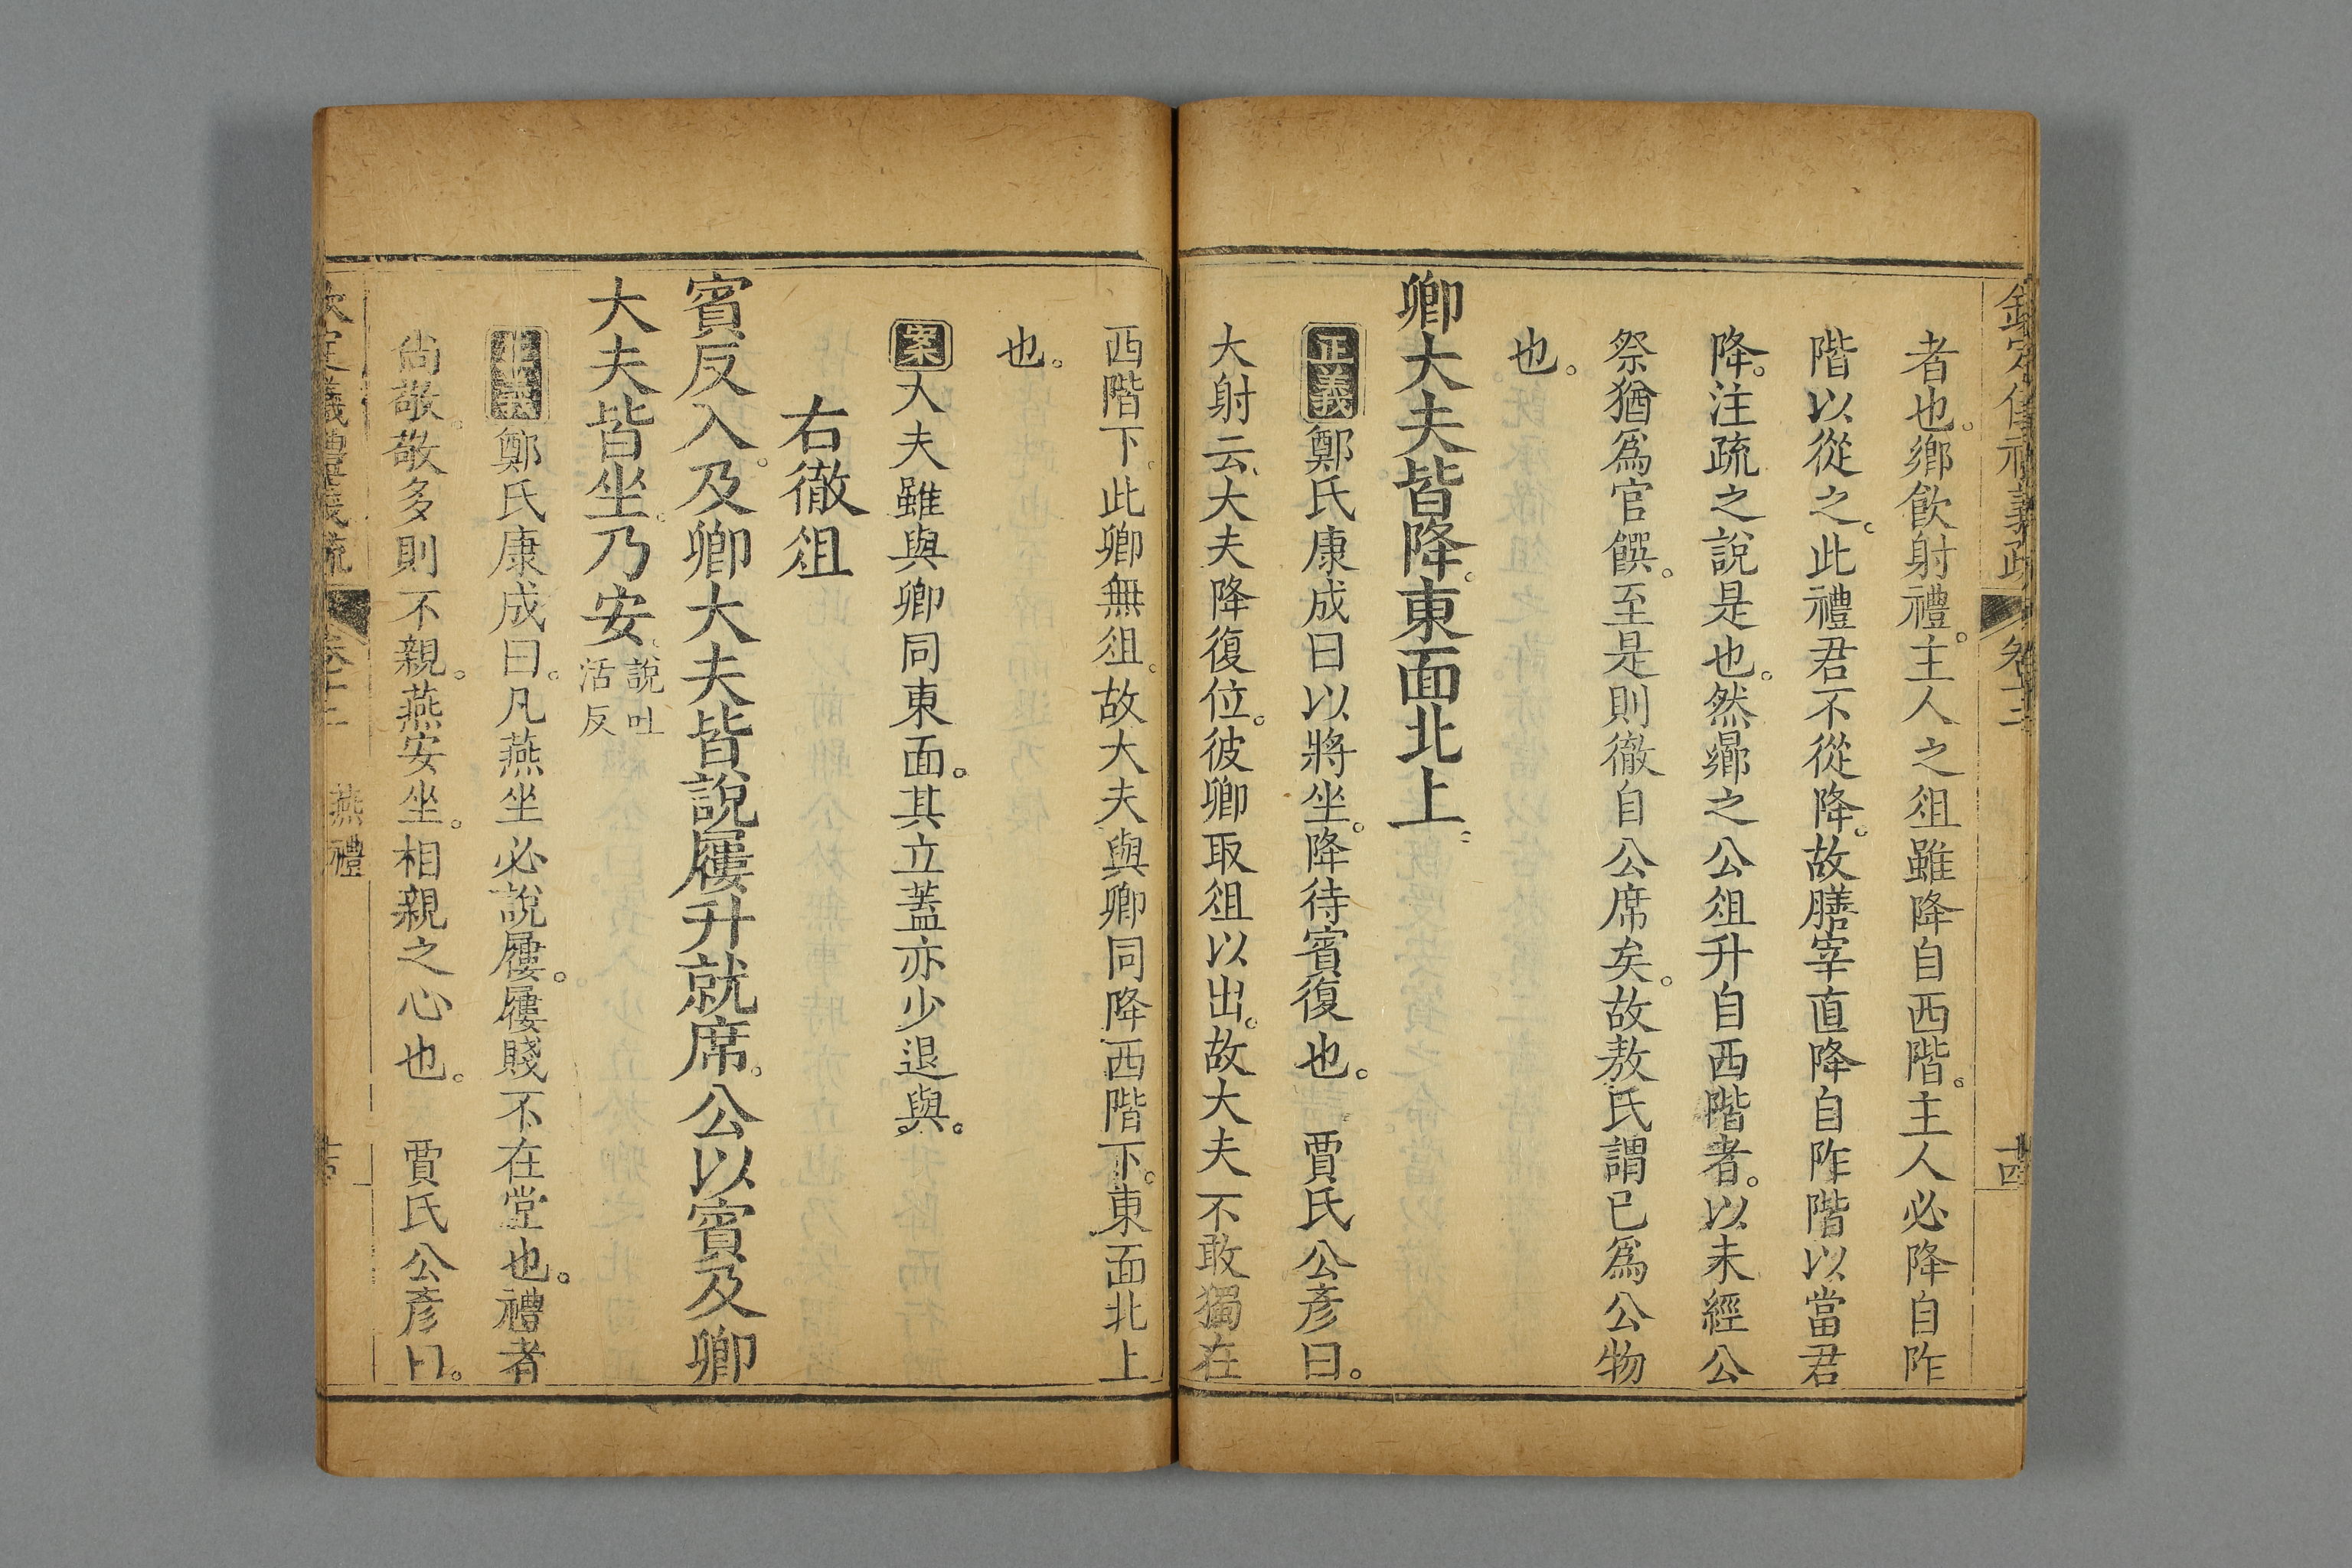 欽定儀禮義疏 卷十二 十四
者也。鄉飲射禮。主人之俎雖降自西階。主人必降自阼
階以從之。此禮君不從降。故膳宰直降自阼階以當君
降。注疏之說是也。然鼏之公俎升自西階者。以未經公
祭猶爲官饌。至是則徹自公席矣。故敖氏謂已爲公物
也。
卿大夫皆降。東面北上。
正義鄭氏康成曰以將坐。降待賓復也。 賈氏公彥曰。
大射云、大夫降復位。彼卿取俎以出。故大夫不敢獨在
西階下。此卿無俎。故大夫與卿同降西階下。東面北上
也。
案大夫雖與卿同東面。其立蓋亦少退與。
右徹俎
賓反入。及卿大夫皆說屨升就席。公以賓及卿
大夫皆坐。乃安。說吐活反
正義鄭氏康成曰。凡燕坐必說屨。屨賤不在堂也。禮者
尚敬。敬多則不親。燕安坐。相親之心也。 賈氏公彥曰。
欽定儀禮義疏 卷十二 燕禮